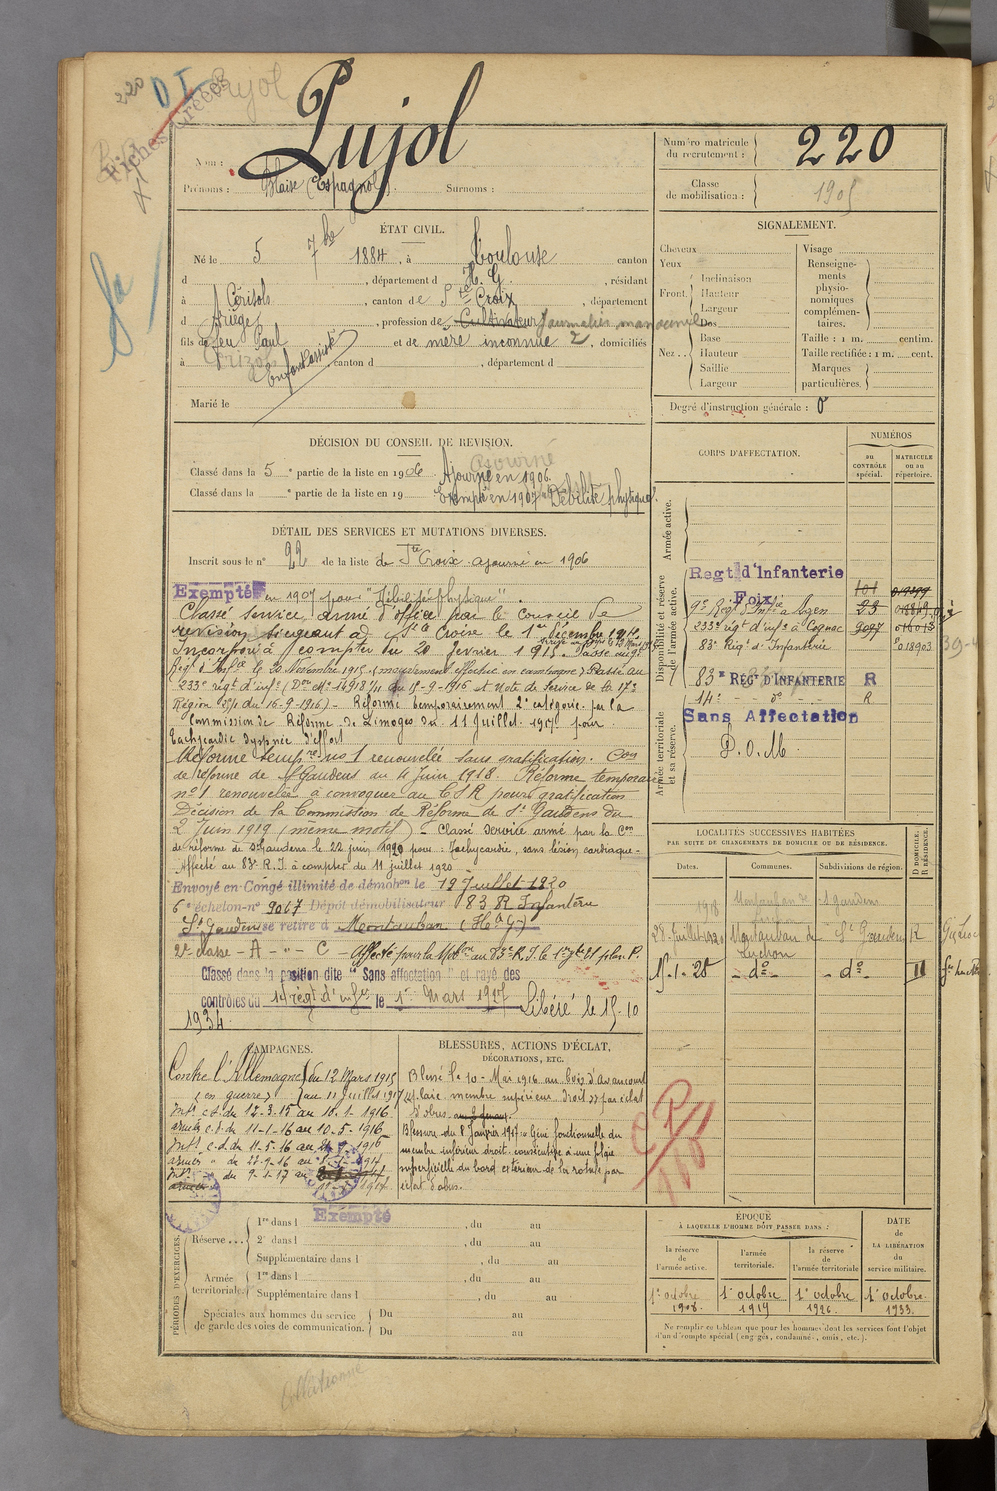 220
D I
Pujol
Fiches
Pujol
Nom :
Prénoms : Blaise (Espagnol). Surnoms :
ÉTAT CIVIL.
Né le 5 7bre 1884, à Toulouse canton
d , département d H. G. , résidant
à Cérisols , canton de Ste Croix , département
d Ariège , profession de Cultivateur Journalier manoeuvre
fils de feu Paul et de mère inconnue 2, domiciliés
à , canton d , département d
Enfant assisté
Marié le
DÉCISION DU CONSEIL DE REVISION.
Ajourné
Classé dans la 5 e partie de la liste en 1906 Ajourné en 1906.
Classé dans la e partie de la liste en 19 Exempté en 1907 Débilité physique
DÉTAIL DES SERVICES ET MUTATIONS DIVERSES.
Inscrit sous le n° 22 de la liste de Ste Croix ajourné en 1906
Exempté en 1907 pour "Débilité physique".
Classé service armé d'office par le Conseil de
revision siégeant à Ste Croix le 1er décembre 1914.
Incorporé à compter du 20 février 1915. Passé au 9e
Régt d'Infie le 20 Novembre 1915 (mouvement effectué en campagne) Passé au
233e régt d'infie (Don Mle 14918 1/11 du 15-9-1916 et Note de Service de la 17e
Région du 16-9-1916) - Réformé temporairement 2e catégorie par la
Commission de Réforme de Limoges du 11 Juillet 1917 pour
tachycardie dyspnée d'effort
Réforme tempre no 1 renouvelée sans gratification. Con
de réforme de St Gaudens du 4 Juin 1918. Réforme temporaire
n° 1 renouvelée à convoquer au C S R pour gratification
Décision de la Commission de Réforme de St Gaudens du
2 Juin 1919 (même motif) - Classé service armé par la Con
de réforme de St Gaudens le 22 juin 1920 pour : Tachycardie, sans lésion cardiaque -
Affecté au 83e R.I. à compter du 11 juillet 1920 -
Envoyé en Congé illimité de démobon le 12 Juillet 1920
6e échelon - n° 9067 Dépôt démobilisateur 83 R Infanterie
St Gaudens se retire à Montauban (Hte G)
2e classe - A - " - C - Affecté pour la Mobon au 83e R.I.
Classé dans la position dite "Sans affectation" et rayé des
contrôles du 14e régt d'infie le 1er Mars 1927 Libéré le 15-10
1934.
CAMPAGNES.
Contre l'Allemagne du 12 Mars 1915
(en guerre) au 11 Juillet 1917
Intr c.d. du 12-3-15 au 10-1-1916
armées c.d. du 11-1-16 au 10-5-1916
Intr c.d. du 11-5-16 au
armées " du 22-9-16 au
Intr " du 9-1-17 au
BLESSURES, ACTIONS D'ÉCLAT,
DÉCORATIONS, ETC.
Blessé le 10 - Mai 1916 au bois d'Avaucourt
plaie membre supérieur droit par éclat
d'obus.
Blessure du 8 Janvier 1917 : Gêne fonctionnelle du
membre inférieur droit consécutive à une plaie
superficielle du bord externe de la rotule par
éclat d'obus.
PÉRIODES D'EXERCICES.
Exempté
Réserve ...
1re dans l , du au
2e dans l , du au
Supplémentaire dans l , du au
Armée territoriale.
1re dans l , du au
Supplémentaire dans l , du au
Spéciales aux hommes du service
de garde des voies de communication.
Du au
Du au
Numéro matricule
du recrutement : 220
Classe
de mobilisation : 1905
SIGNALEMENT.
Cheveux
Yeux
Front.
Inclinaison
Hauteur
Largeur
Nez ..
Dos
Base
Hauteur
Saillie
Largeur
Visage
Renseignements
physionomiques
complémentaires.
Taille : 1 m. centim.
Taille rectifiée : 1 m. cent.
Marques
particulières.
Degré d'instruction générale : 0
CORPS D'AFFECTATION.
NUMÉROS
au CONTRÔLE spécial.
MATRICULE ou au répertoire.
Armée active.
Disponibilité et réserve de l'armée active.
Regt d'Infanterie
Foix
9e Régt d'Infie à Agen 23
233e régt d'infie à Cognac 9097
83e Rég. d'Infanterie 018903
Armée territoriale et sa réserve.
83e REGT D'INFANTERIE R
14e - do - R
Sans Affectation
D. O. M.
LOCALITÉS SUCCESSIVES HABITÉES
PAR SUITE DE CHANGEMENTS DE DOMICILE OU DE RÉSIDENCE.
Dates. Communes. Subdivisions de région. D DOMICILE, R RÉSIDENCE.
1918 Montauban de Luchon St Gaudens
28 Juillet 1920 Montauban de Luchon St Gaudens R
15-1-28 - do - - do -
C R
ÉPOQUE
À LAQUELLE L'HOMME DOIT PASSER DANS :
la réserve de l'armée active.
l'armée territoriale.
la réserve de l'armée territoriale
DATE de LA LIBÉRATION du service militaire.
1er octobre 1908.
1er octobre 1919
1er octobre 1926.
1er octobre 1933.
Ne remplir ce tableau que pour les hommes dont les services font l'objet
d'un décompte spécial (engagés, condamnés, omis, etc.).
Collationné